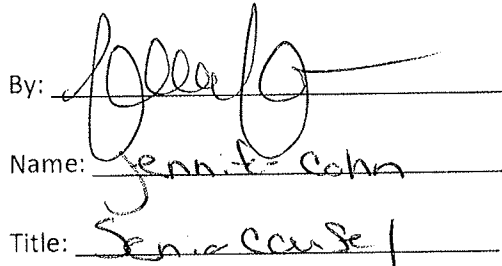 By:
Name: Jennifer Cohn
Title: Senior Counsel